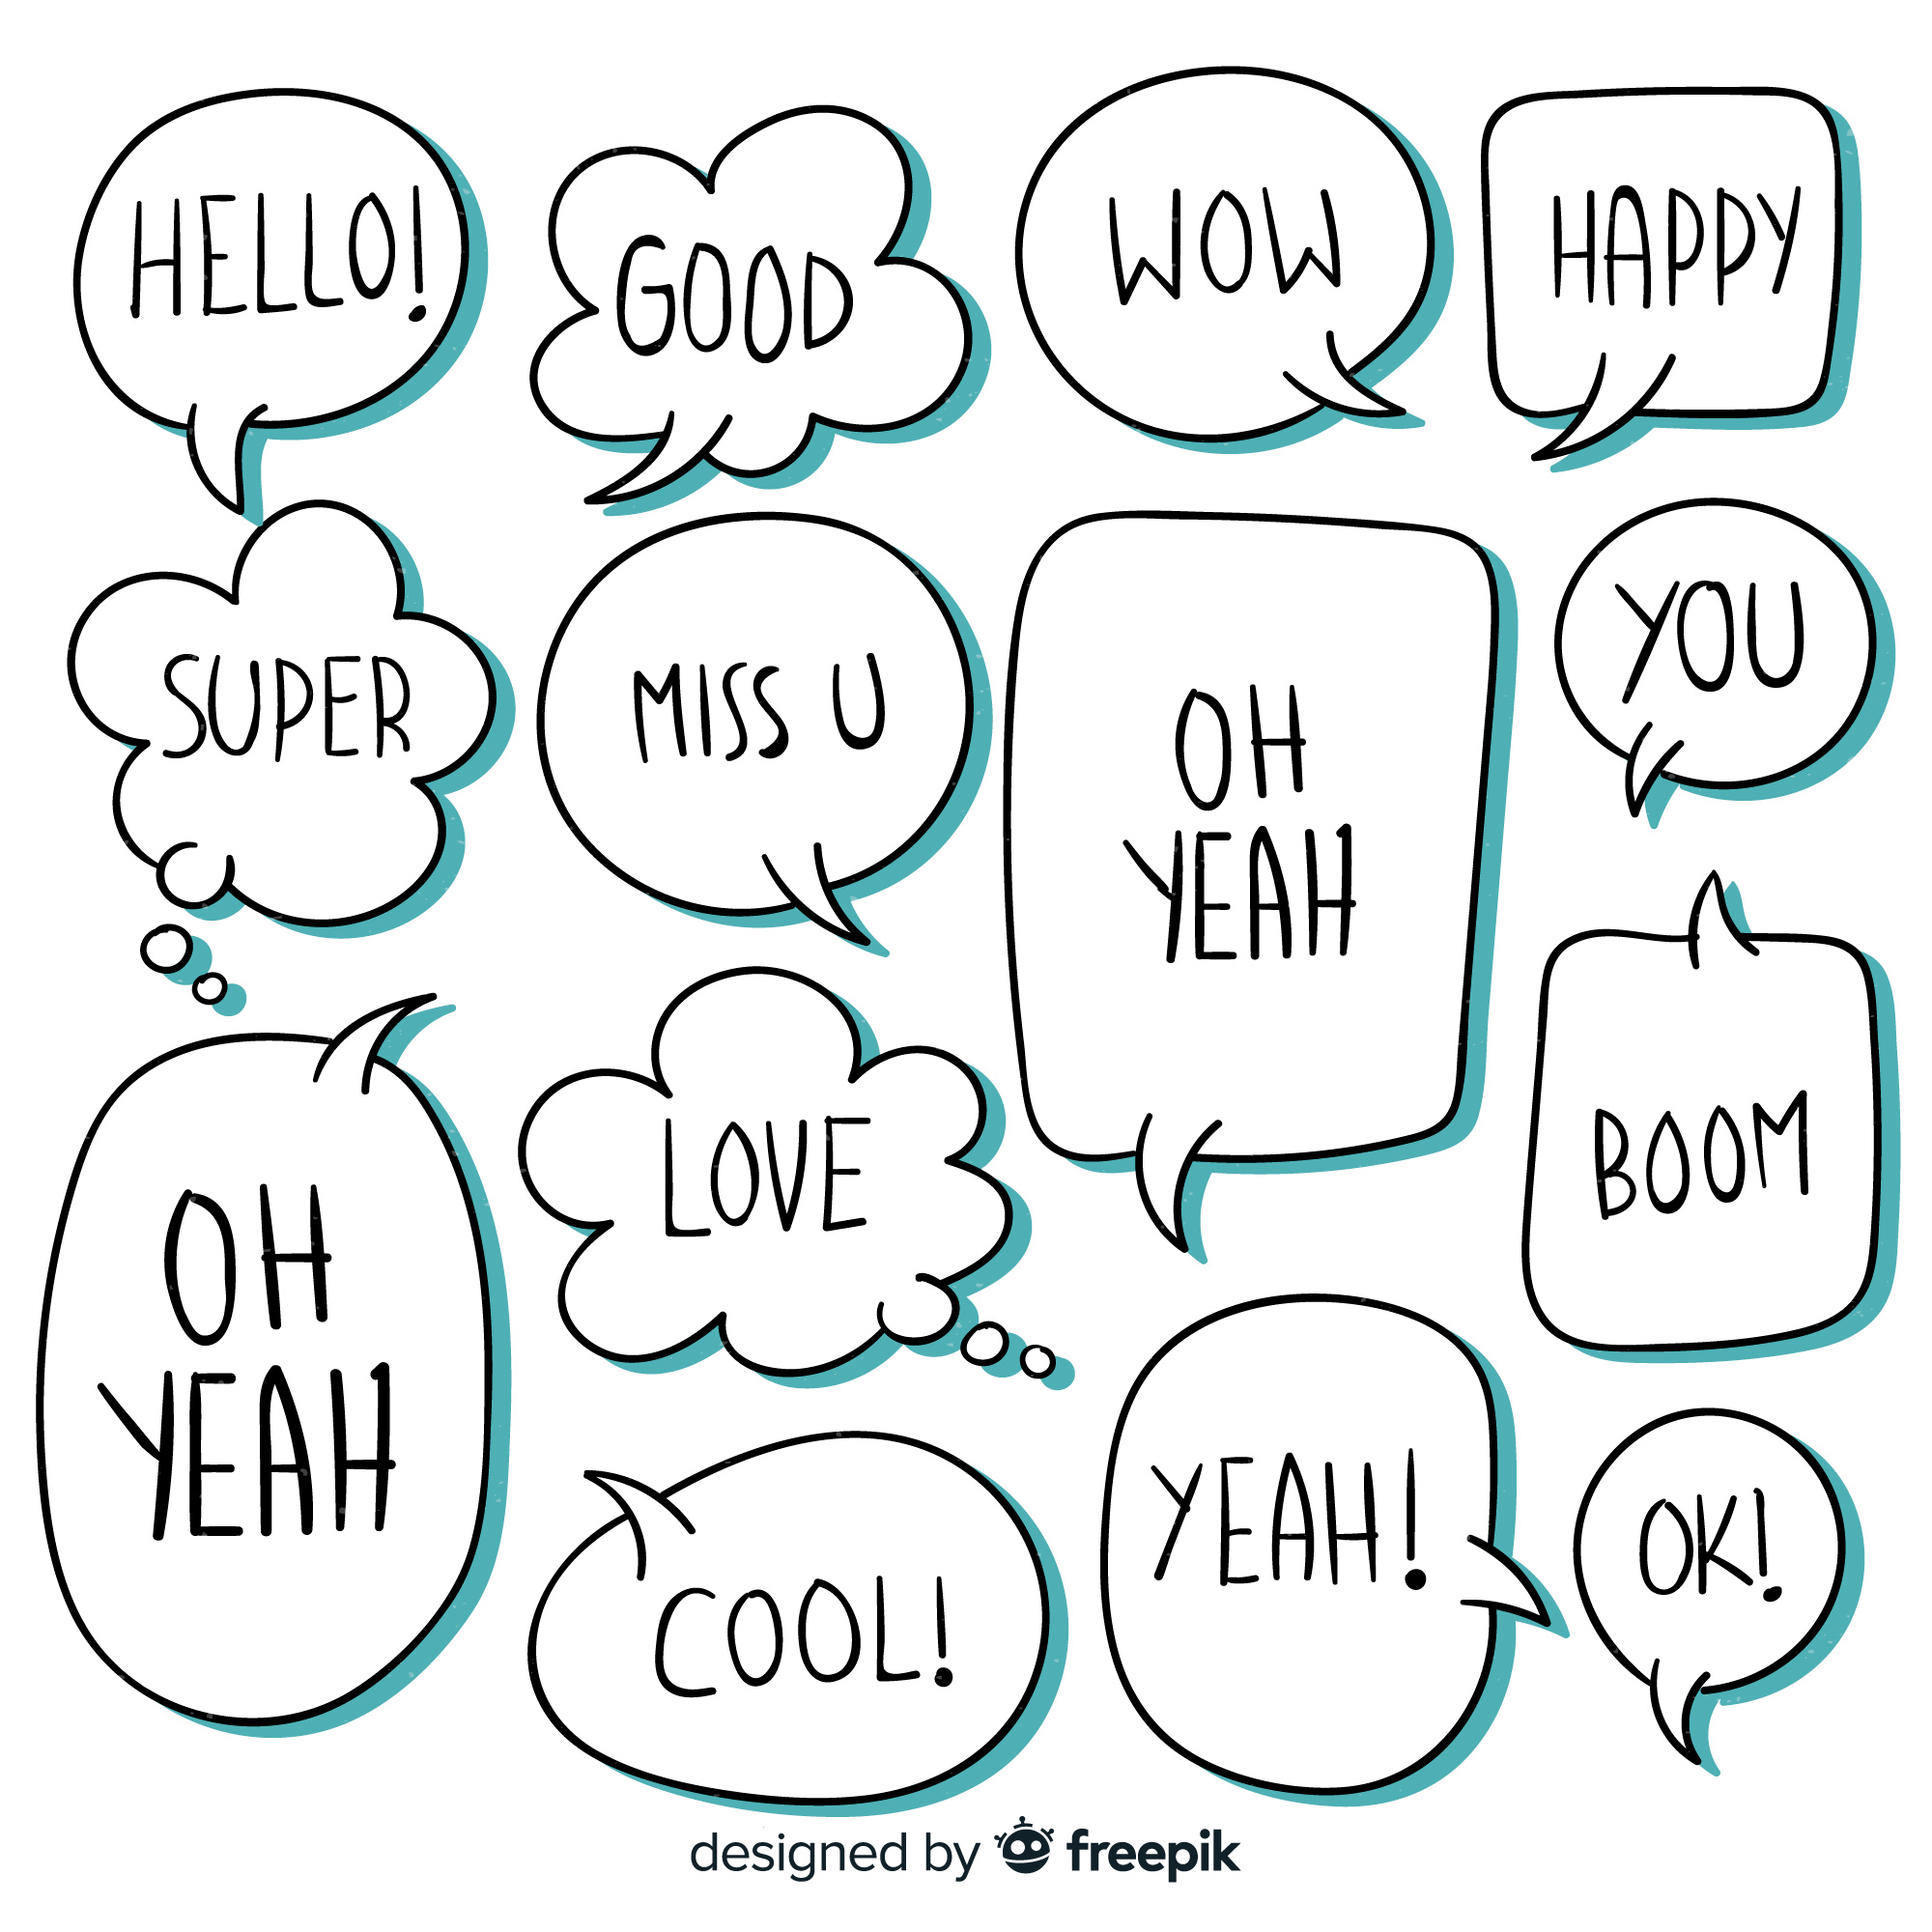 HELLO!
GOOD
WOW
HAPPY
SUPER
MISS U
OH
YEAH
YOU
OH
YEAH
LOVE
BOOM
COOL!
YEAH!
OK!
designed by freepik